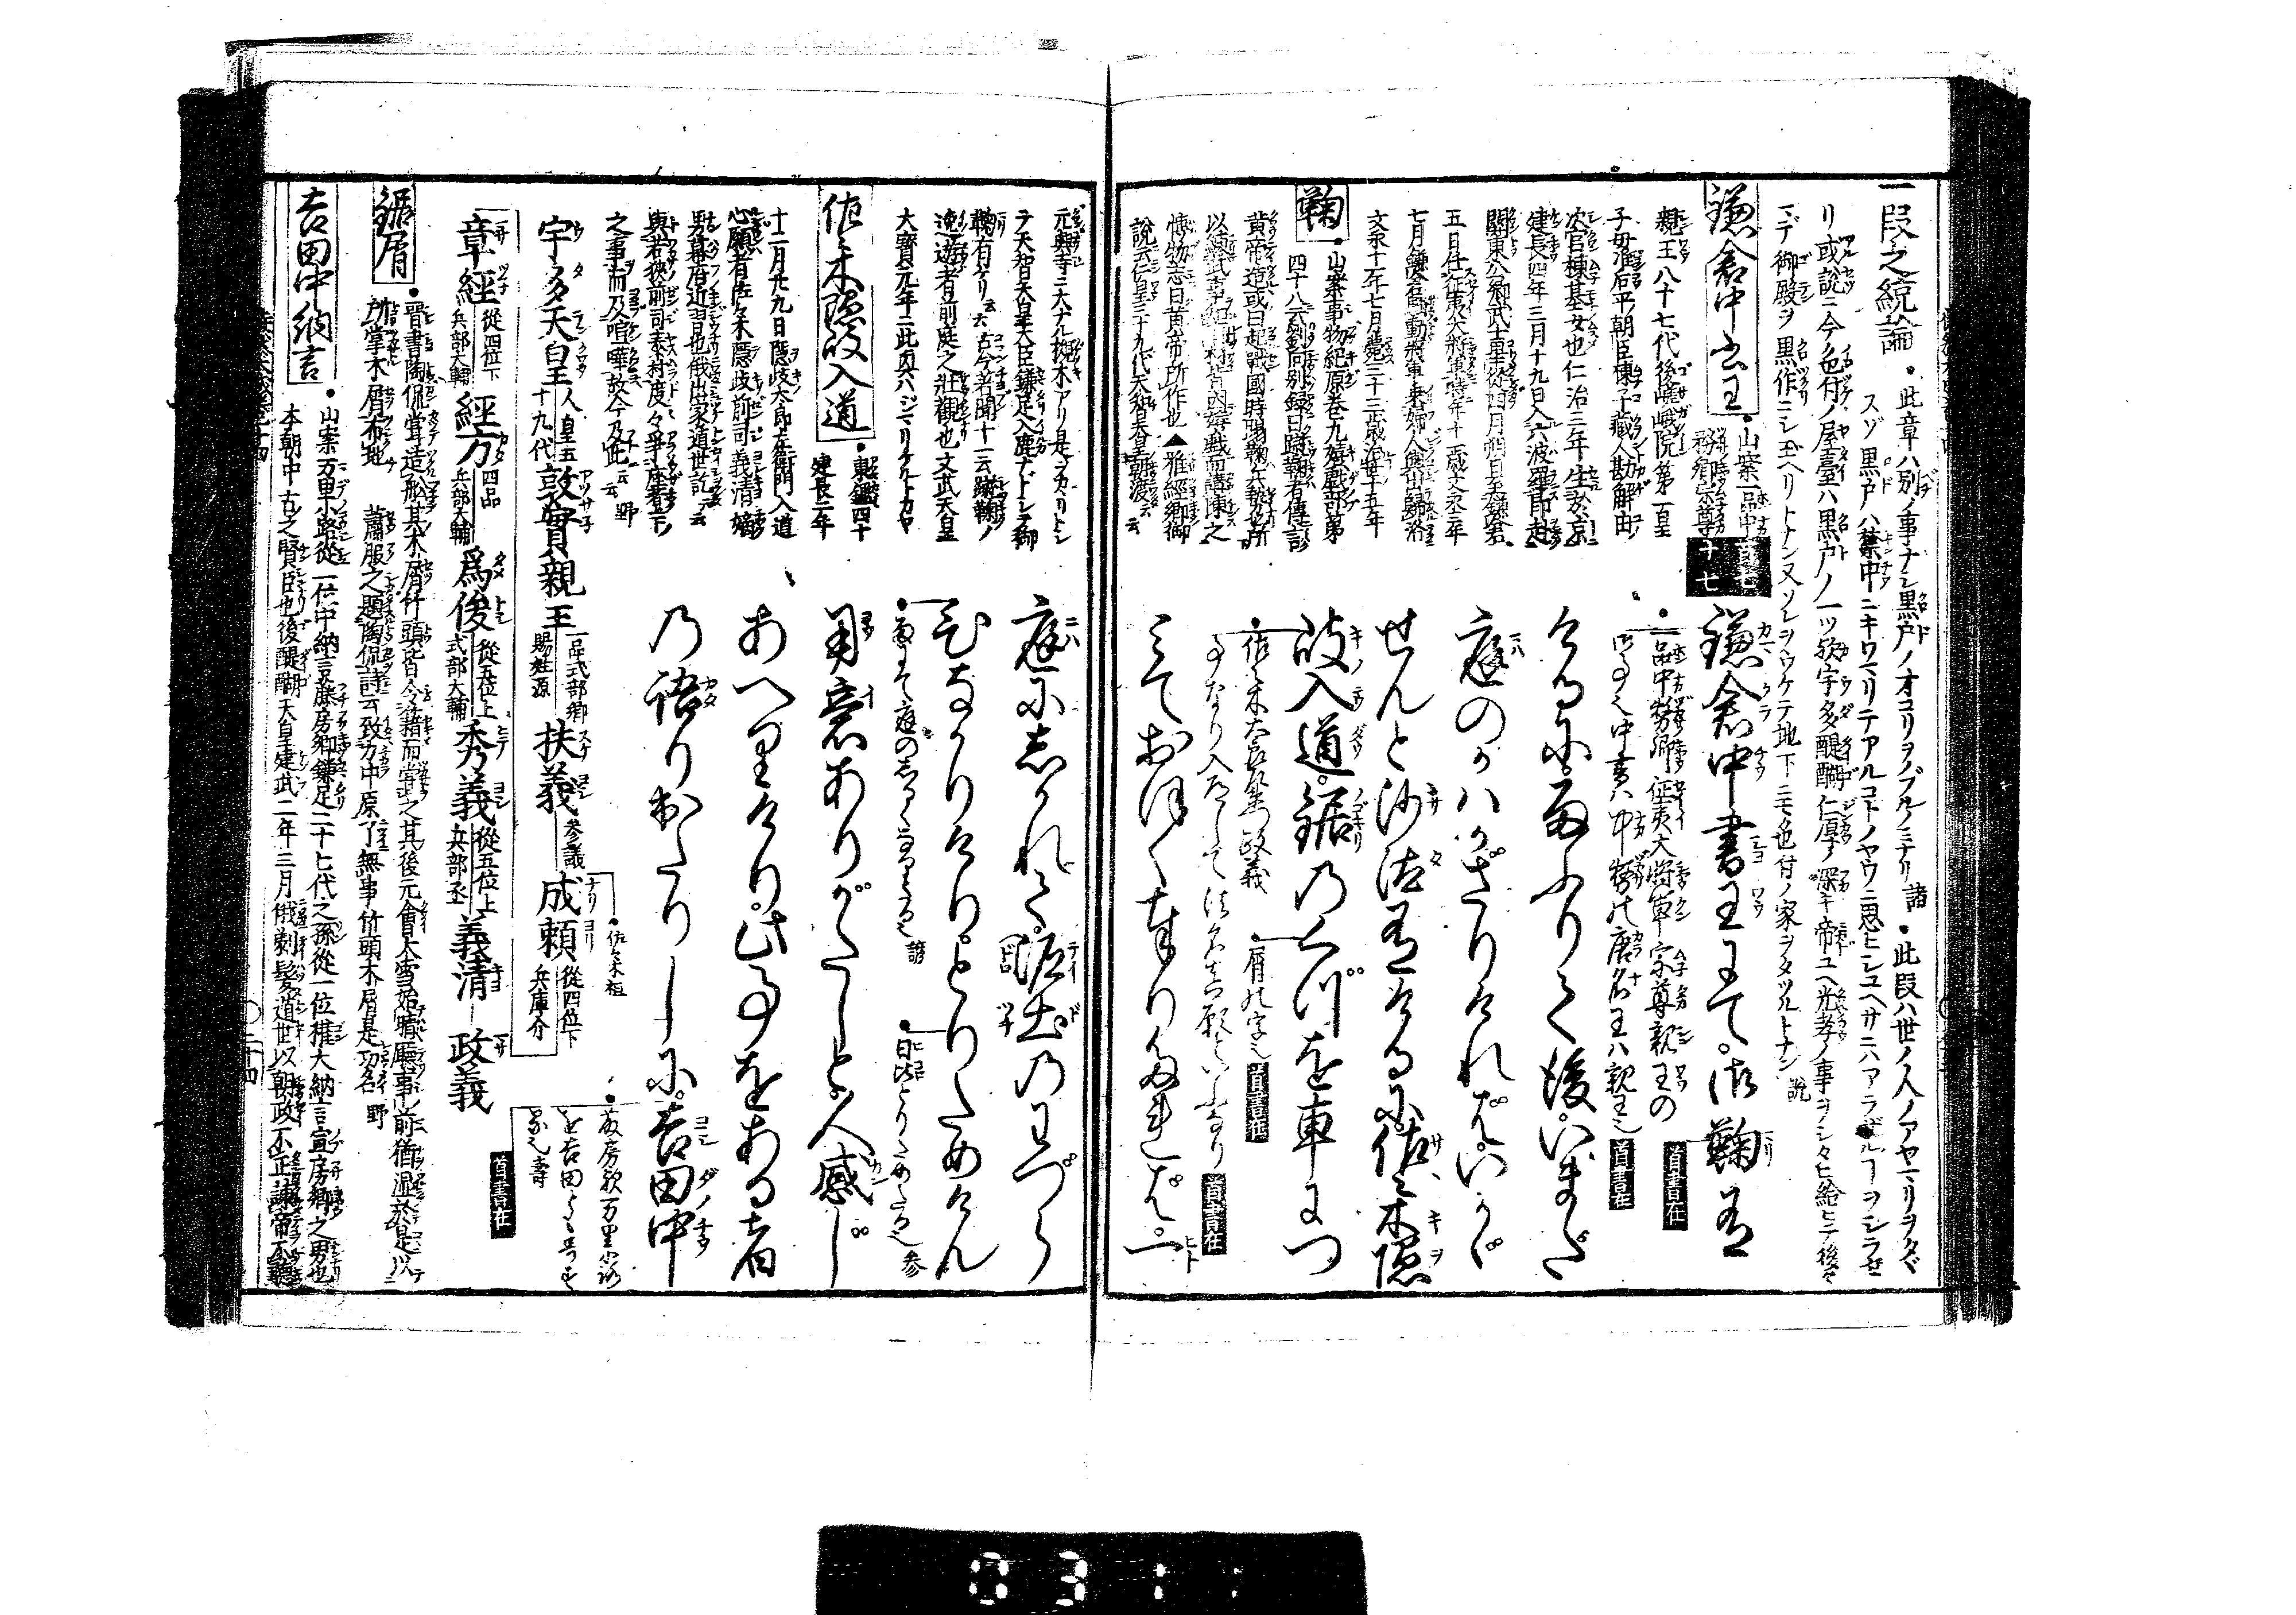 一段之統論
・此章ハ別ノ事ナシ黒戸ノオコリヲノブルノミナリ 諸 ・此段ハ世ノ人ノアヤマリヲタヾ
スゾ黒戸ハ禁中ニキワマリテアルコトノヤウニ思ヒシユヘサニハアラザルヿヲシラセ
リ或説ニ今色付ノ屋臺ハ黒戸ノ一ツ欤宇多醍醐仁厚ノ深キ帝ユヘ光孝ノ事ヲシタヒ給ヒテ後々
マデ御殿ヲ黒作ニシ玉ヘリトナン又ソレヲウケテ地下ニモ色付ノ家ヲタツルトナン 説
鎌倉中書王
・山案一品中務卿宗尊
親王八十七代後嵯峨院第一皇
子母准后平朝臣棟子蔵人勘解由
次官棟基女也仁治三年生於京
建長四年三月十九日入六波羅即赴
關東公卿武士扈從四月朔日至鎌倉
五日任征夷大將軍時年十一歳文永三年
七月鎌倉騒動將軍乗婦人輿出歸洛
文永十一年七月薨三十三歳治世十五年
鞠
・山案事物紀原巻九嬉戯部第
四十八云劉向別録曰蹴鞠者傳言
黄帝造或曰起戰國時蹋鞠兵勢也所
以練武士知有材皆因嬉戯而講練之
博物志曰黄帝所作也▲雅經卿御
説云仁皇三十九代天智天皇
百七十七
鎌倉中書王にて御鞠有
・一品中務卿征夷大將軍宗尊親王の
御事也中書ハ中務の唐名王ハ親王也 首書在 首書在
けるに雨ふりて後いまだ
庭のかハかざりけれバいかゞ
せんと沙汰有けるに佐々木隠
岐入道鋸のくづを車につ
・佐々木太郎左衛門政義
・屑の字也 首書在
事なり入道して法名 首書在
ミておほく奉りたれバ一
元興寺ニ大ナル槻木アリ是ヲカヽリトシ
テ天智天皇大臣鎌足入鹿ナドシテ御
鞠有ケリ云云古今著聞十一云蹴鞠ノ
逸遊者前庭之壮觀也文武天皇
大寳元年ニ此興ハジマリケルトカヤ
佐々木隠岐入道
・東鑑四十
建長二年
十二月廿九日隠岐太郎左衛門入道
心願者佐々木隠岐前司義清嫡
男幕府近習也俄出家遁世訖云云
與若狭前司泰村度々爭座者下
之事而及喧嘩故今及此云云 野
庭にしかれて泥土のわづら
ひなかりけりとりためけん
・雨にて庭のしるくなりたる也 諸
・日比とりためたる也 参
用意ありがたしと人感じ
あへりけり此事をある者
の語り出たりしに吉田中
・藤房欤万里小路
を吉田とも号す
る也 壽
宇多天皇 人皇五十九代 敦實親王 一品式部卿 賜姓源 扶義 参議 成頼 從四位下 兵庫介
・佐々木祖
章經 從四位下 兵部大輔 經方 四品 兵部大輔 爲俊 從五位上 式部大輔 秀義 從五位上 兵部丞 義清 政義 首書在
鋸屑
・晋書陶侃嘗造船其木屑竹頭皆令藉而掌之其後元會大雪始晴廳事前猶濕於是以
所掌木屑布地 蕭服之題陶侃詩云致力中原了無事竹頭木屑是功名 野
吉田中納言
・山案万里小路從一位中納言藤房卿鎌足二十七代之孫從一位権大納言宣房卿之男也
本朝中古之賢臣也後醍醐天皇建武二年三月俄剃髪遁世以朝政不正諫帝不聽
二十四
0311